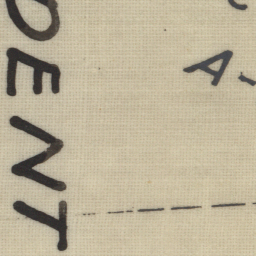 DENT
A-